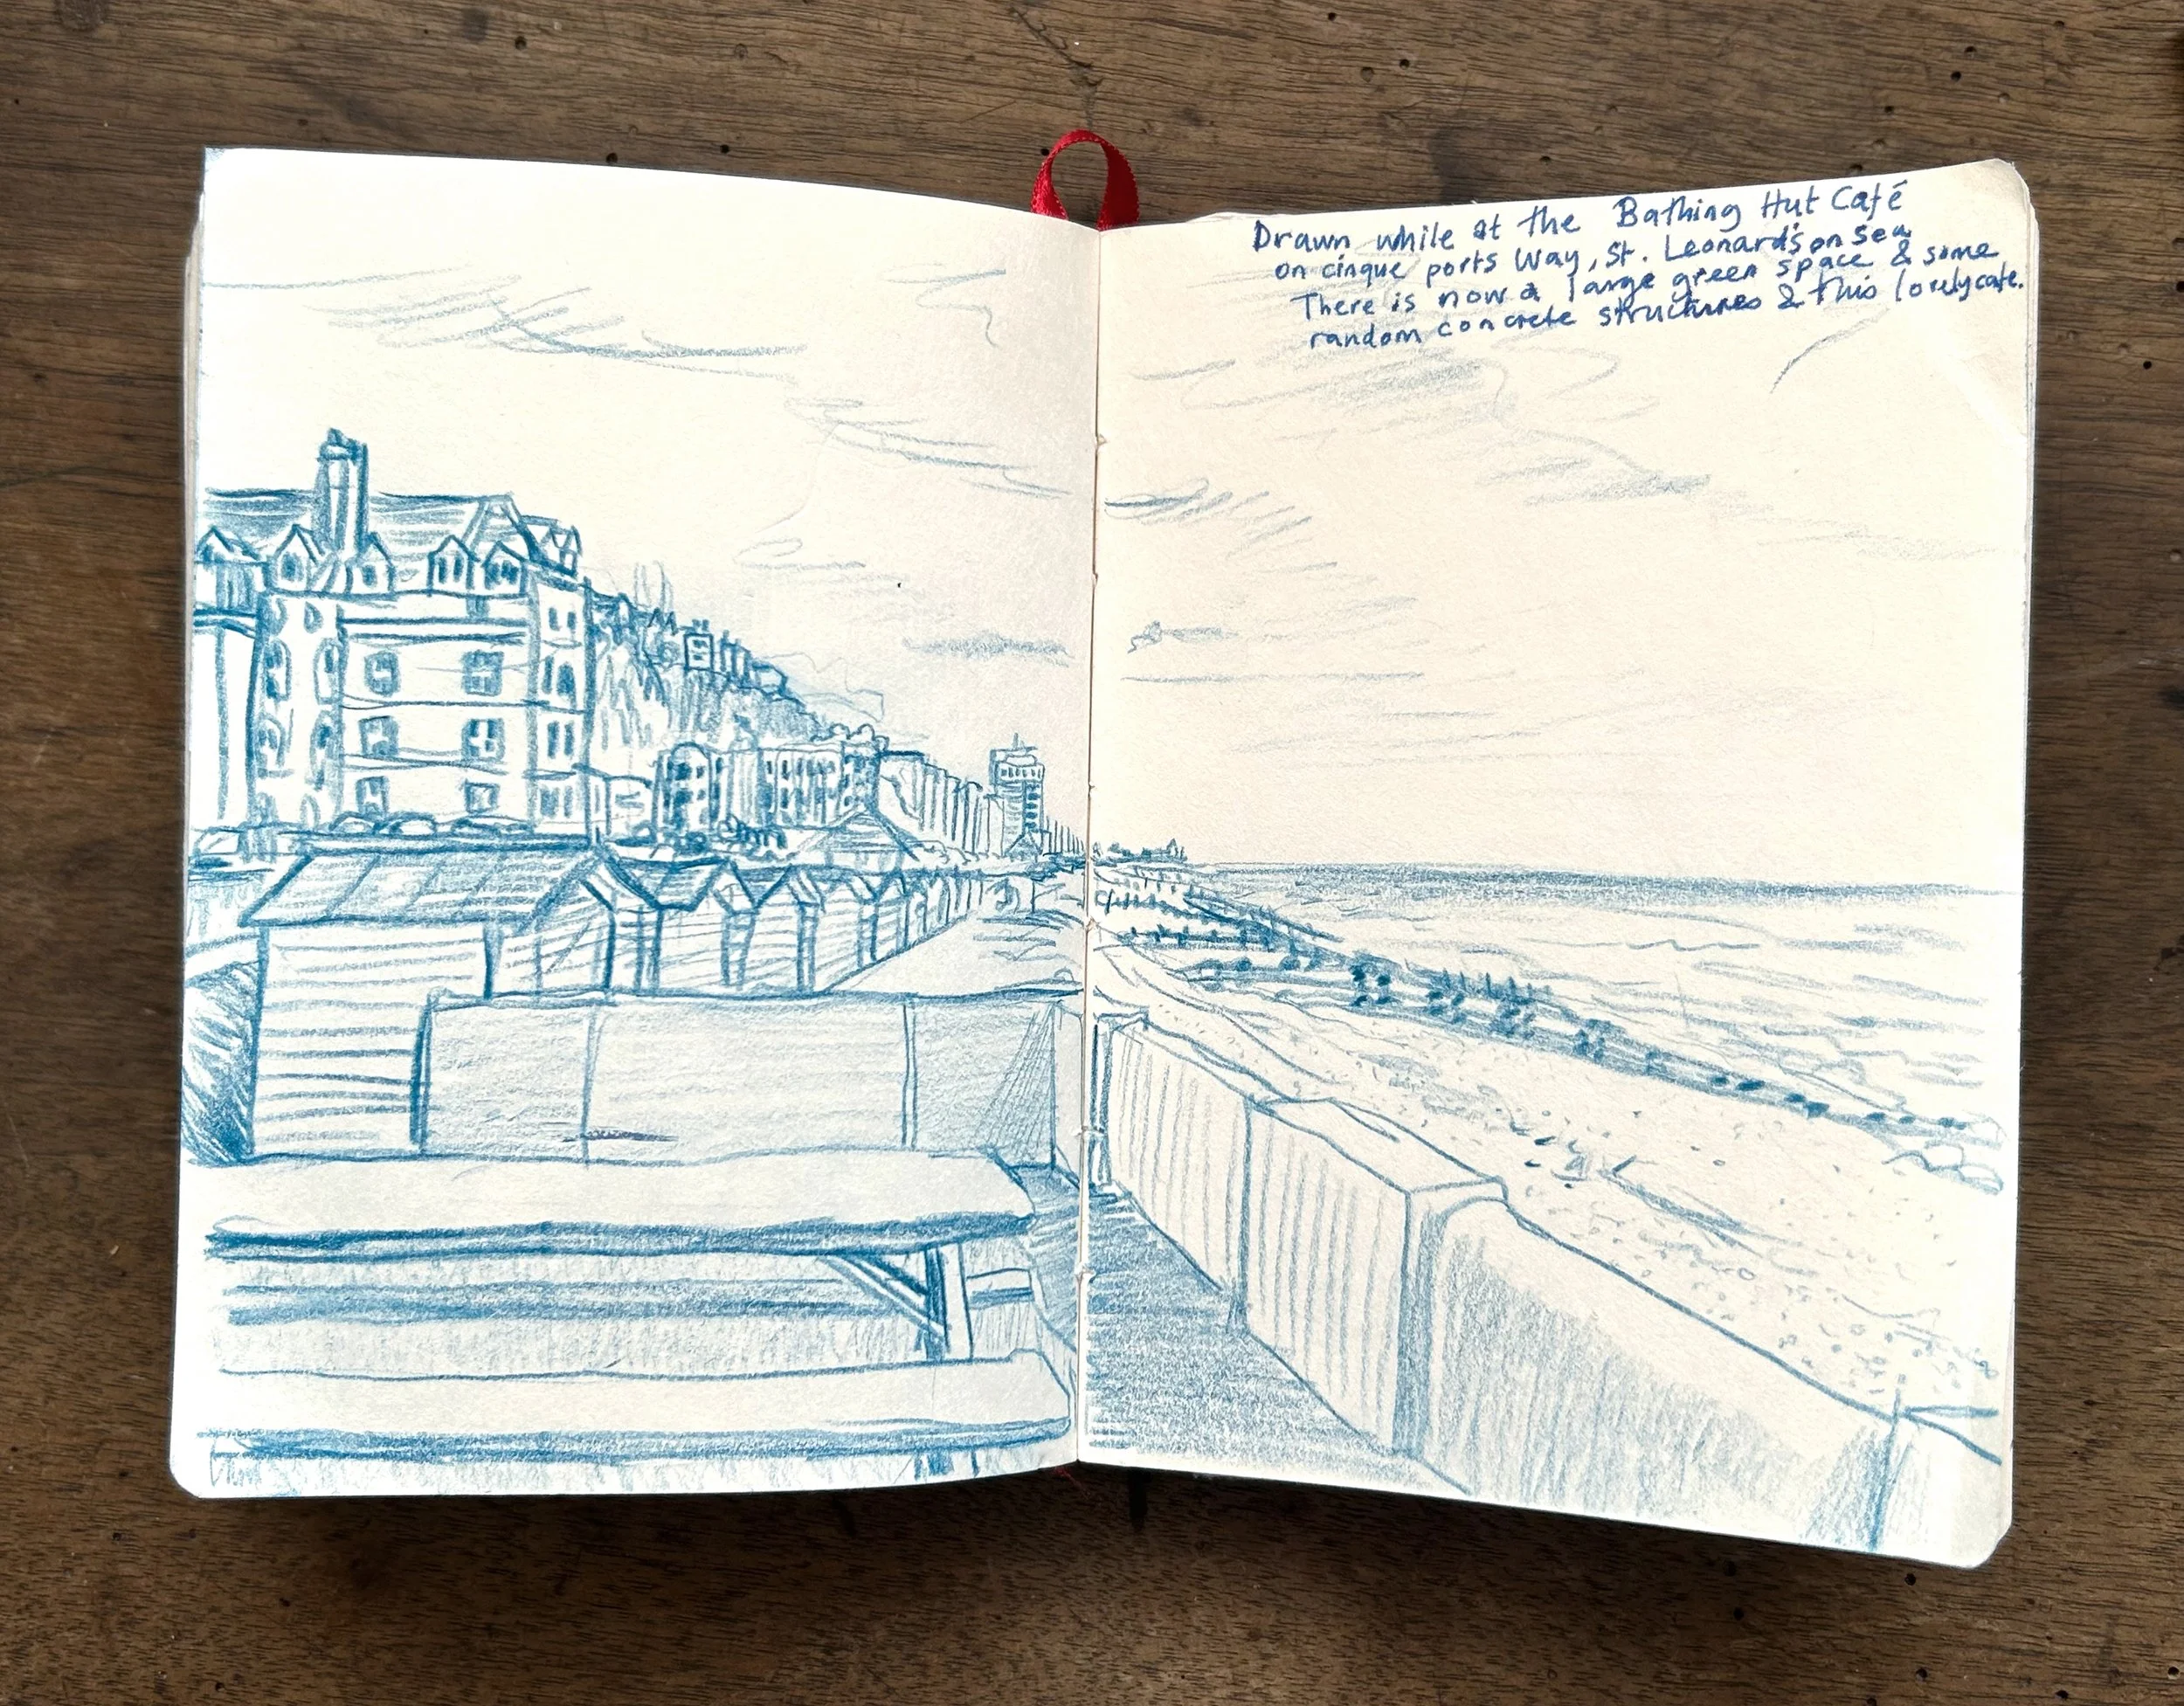 Drawn while at the Bathing Hut Café
on cinque ports Way, St. Leonard's on Sea
There is now a large green space & some
random concrete structures & this lovely cafe.